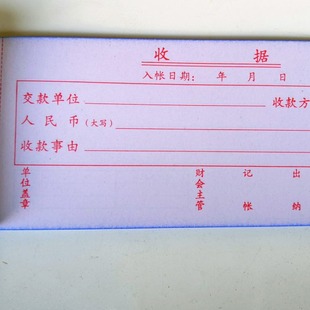 收 据
入帐日期： 年 月 日
交款单位 收款方
人民币（大写）
收款事由
单位盖章 财会主管 记帐 出纳